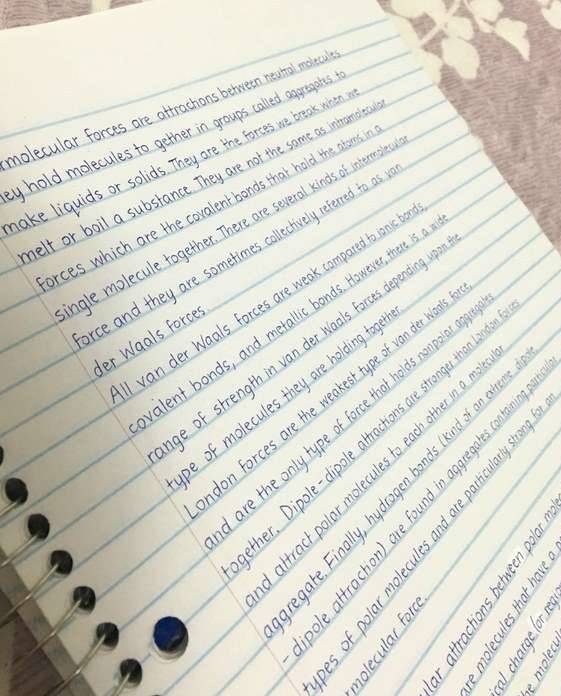 rmolecular forces are attractions between neutral molecules
ey hold molecules to gether in groups called aggregates to
make liquids or solids. They are the forces we break when we
melt or boil a substance. They are not the same as intramolecular
forces which are the covalent bonds that hold the atoms in a
single molecule together. There are several kinds of intermolecular
force and they are sometimes collectively referred to as van
der Waals forces
All van der Waals forces are weak compared to ionic bonds,
covalent bonds, and metallic bonds. However, there is a wide
range of strength in van der Waals forces depending upon the
type of molecules they are holding together
London forces are the weakest type of van der Waals force
and are the only type of force that holds nonpolar aggregates
together. Dipole-dipole attractions are stronger than London forces
and attract polar molecules to each other in a molecular
aggregate. Finally, hydrogen bonds (kind of an extreme dipole
-dipole attraction) are found in aggregates containing particular
types of polar molecules and are particularly strong for an
molecular force.
lar attractions between polar molec
re molecules that have a
al charge for
e molecu